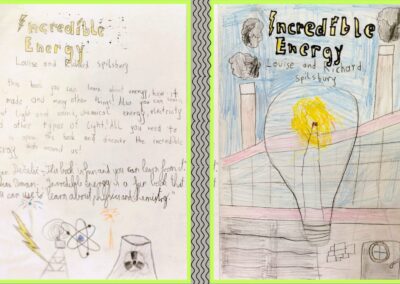 Incredible
Energy
Louise and Richard Spilsbury
this book you can learn about energy, how it
made and many other things! Also you can
light and waves, chemical energy, electricity
other types of light. All you need to
open this book and discover the incredible
energy around us!
book is fun and you can learn from it.
Incredible Energy is a fun book that
can use to learn about physics and chemistry."
Incredible
Energy
Louise and Richard
Spilsbury